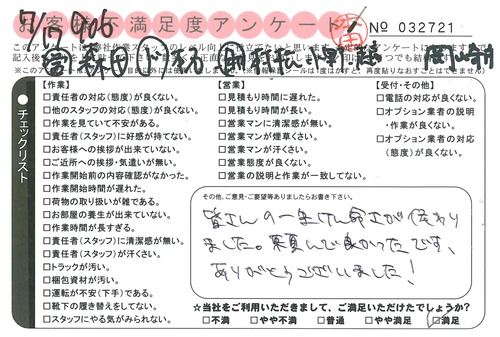 お客様不満足度アンケート
NO 032721
7/17 906
チェックリスト
【作業】
□責任者の対応(態度)が良くない。
□他のスタッフの対応(態度)が良くない。
□作業を見ていて安心がある。
□責任者(スタッフ)に好感が持てない。
□お客様への挨拶が出来ていない。
□ご近所への挨拶・気遣いが無い。
□作業開始前の内容確認がなかった。
□作業開始時間が遅れた。
□荷物の取り扱いが雑である。
□お部屋の養生が出来ていない。
□作業時間が長すぎる。
□責任者(スタッフ)に清潔感が無い。
□責任者(スタッフ)が汗くさい。
□トラックが汚い。
□梱包資材が汚い。
□運転が不安(下手)である。
□靴下の履き替えをしてない。
□スタッフにやる気がみられない。
【営業】
□見積もり時間に遅れた。
□見積もり時間が長い。
□営業マンに清潔感が無い。
□営業マンが煙草くさい。
□営業マンが汗くさい。
□営業態度が良くない。
□営業の説明と作業が一致してない。
【受付・その他】
□電話の対応が良くない。
□オプション業者の説明
・作業が良くない。
□オプション業者の対応
(態度)が良くない。
その他、ご意見・ご要望等ありましたらお書き下さい。
皆さんの一生けん命さが伝わり
ました。頼んで良かったです、
ありがとうございました!
☆当社をご利用いただきまして、ご満足いただけたでしょうか?
□不満 □やや不満 □普通 □やや満足 □満足